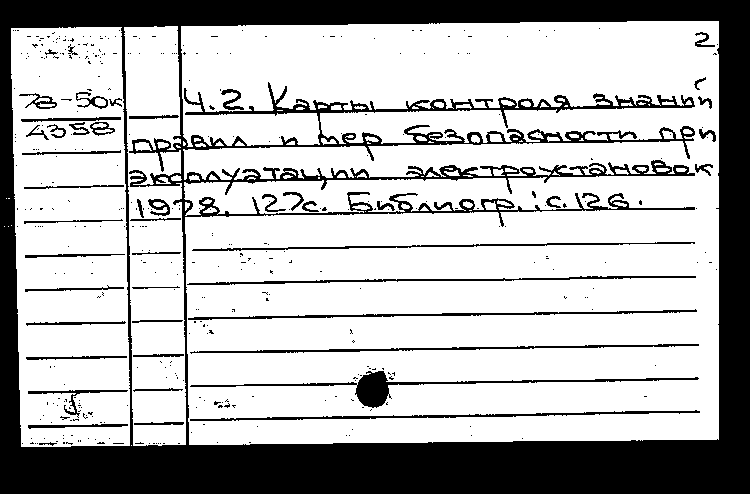 2
78-50к
4358
Ч.2. Карты контроля знаний
правил и мер безопасности при
эксплуатации электроустановок
1978. 127с. Библиогр.: с.126.